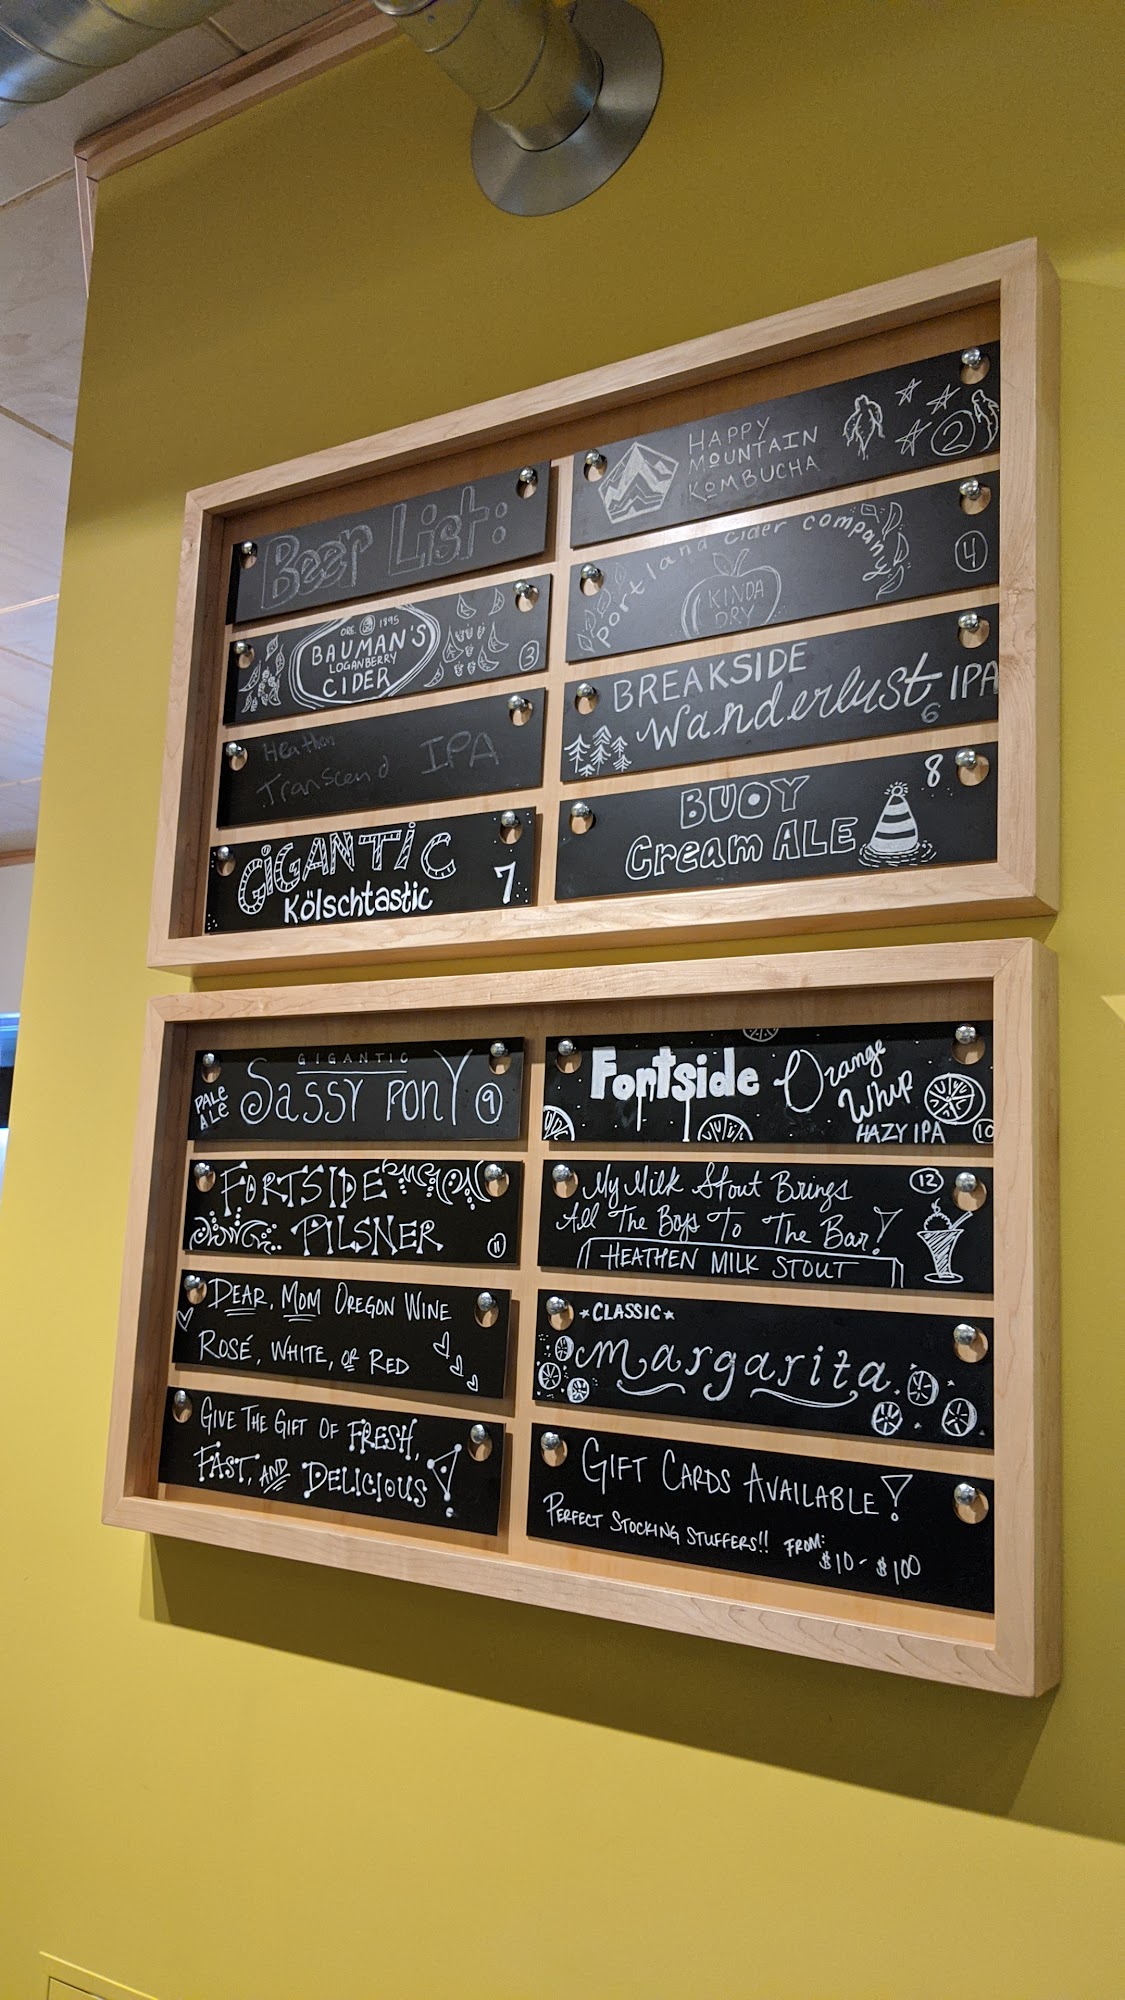 Beer List:
HAPPY
MOUNTAIN
KOMBUCHA
2
ORE. 1895
BAUMAN'S
LOGANBERRY
CIDER
3
Portland cider company
KINDA
DRY
4
Heathen
Transcend IPA
BREAKSIDE
Wanderlust IPA
6
GIGANTIC
Kölschtastic
7
BUOY
Cream ALE
8
GIGANTIC
PALE
ALE
SASSY PONY
9
Fortside Orange
Whip
HAZY IPA
10
FORTSIDE
PILSNER
11
My Milk Stout Brings
All The Boys To The Bar!
HEATHEN MILK STOUT
12
DEAR, MOM OREGON WINE
ROSÉ, WHITE, OR RED
*CLASSIC*
margarita
GIVE THE GIFT OF FRESH,
FAST, AND DELICIOUS!
GIFT CARDS AVAILABLE!
PERFECT STOCKING STUFFERS!! FROM:
$10 - $100